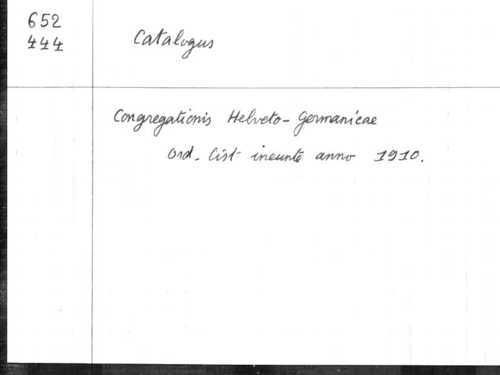 652
444
Catalogus
Congregationis Helveto-Germanicae
Ord. Cist ineunte anno 1910.